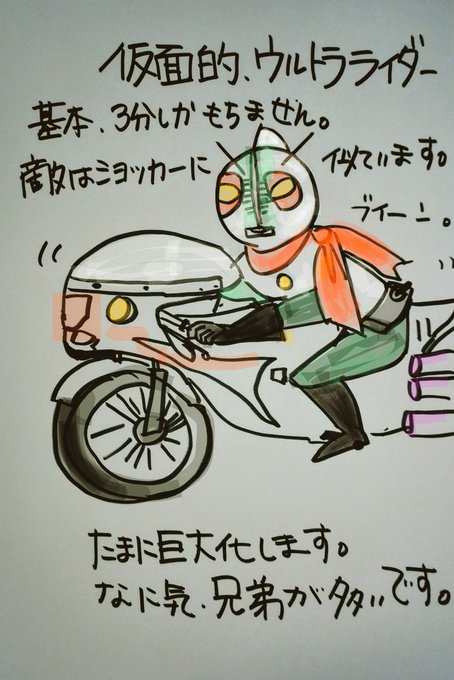 仮面的、ウルトラライダー
基本、3分しかもちません。
敵はショッカーに似ています。
ブイーン。
たまに巨大化します。
なに気、兄弟が多いです。